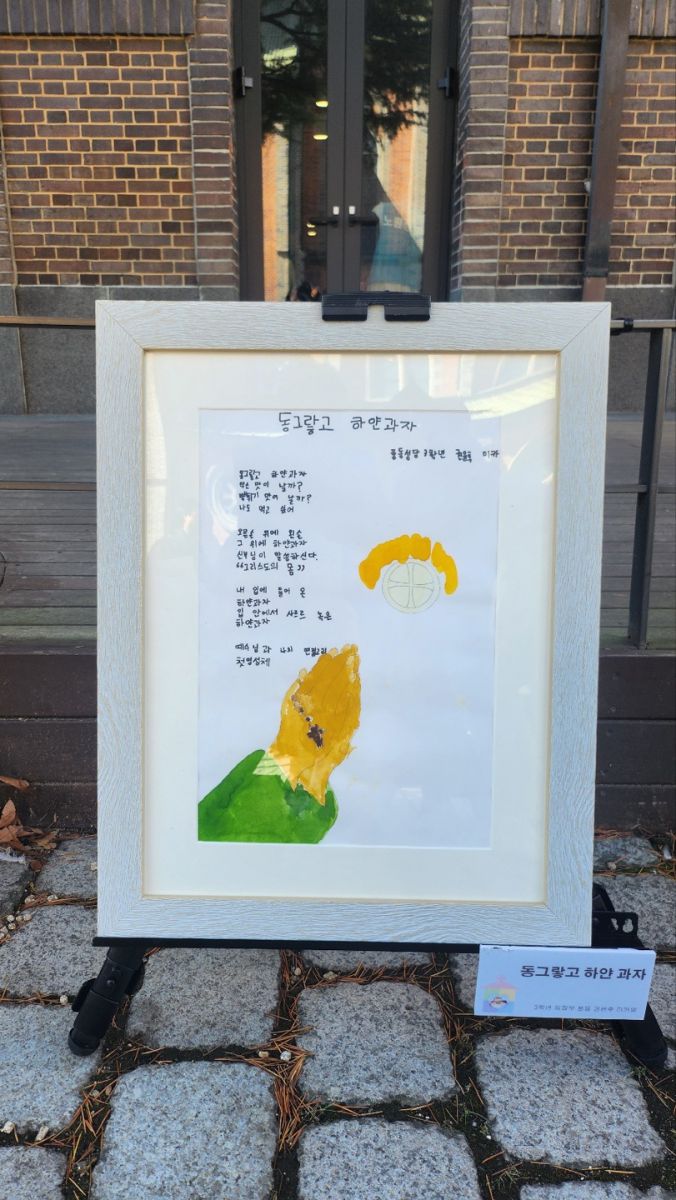 동그랗고 하얀과자
3학년
동그랗고 하얀과자
맛이 날까?
뻥튀기 맛이 날까?
나도 먹고 싶어
오른손 위에 왼손
그 위에 하얀과자
신부님이 말씀하신다.
"그리스도의 몸"
내 입에 들어 온
하얀과자
입 안에서 사르르 녹은
하얀과자
예수님과 나의 연결고리
첫영성체
동그랗고 하얀 과자